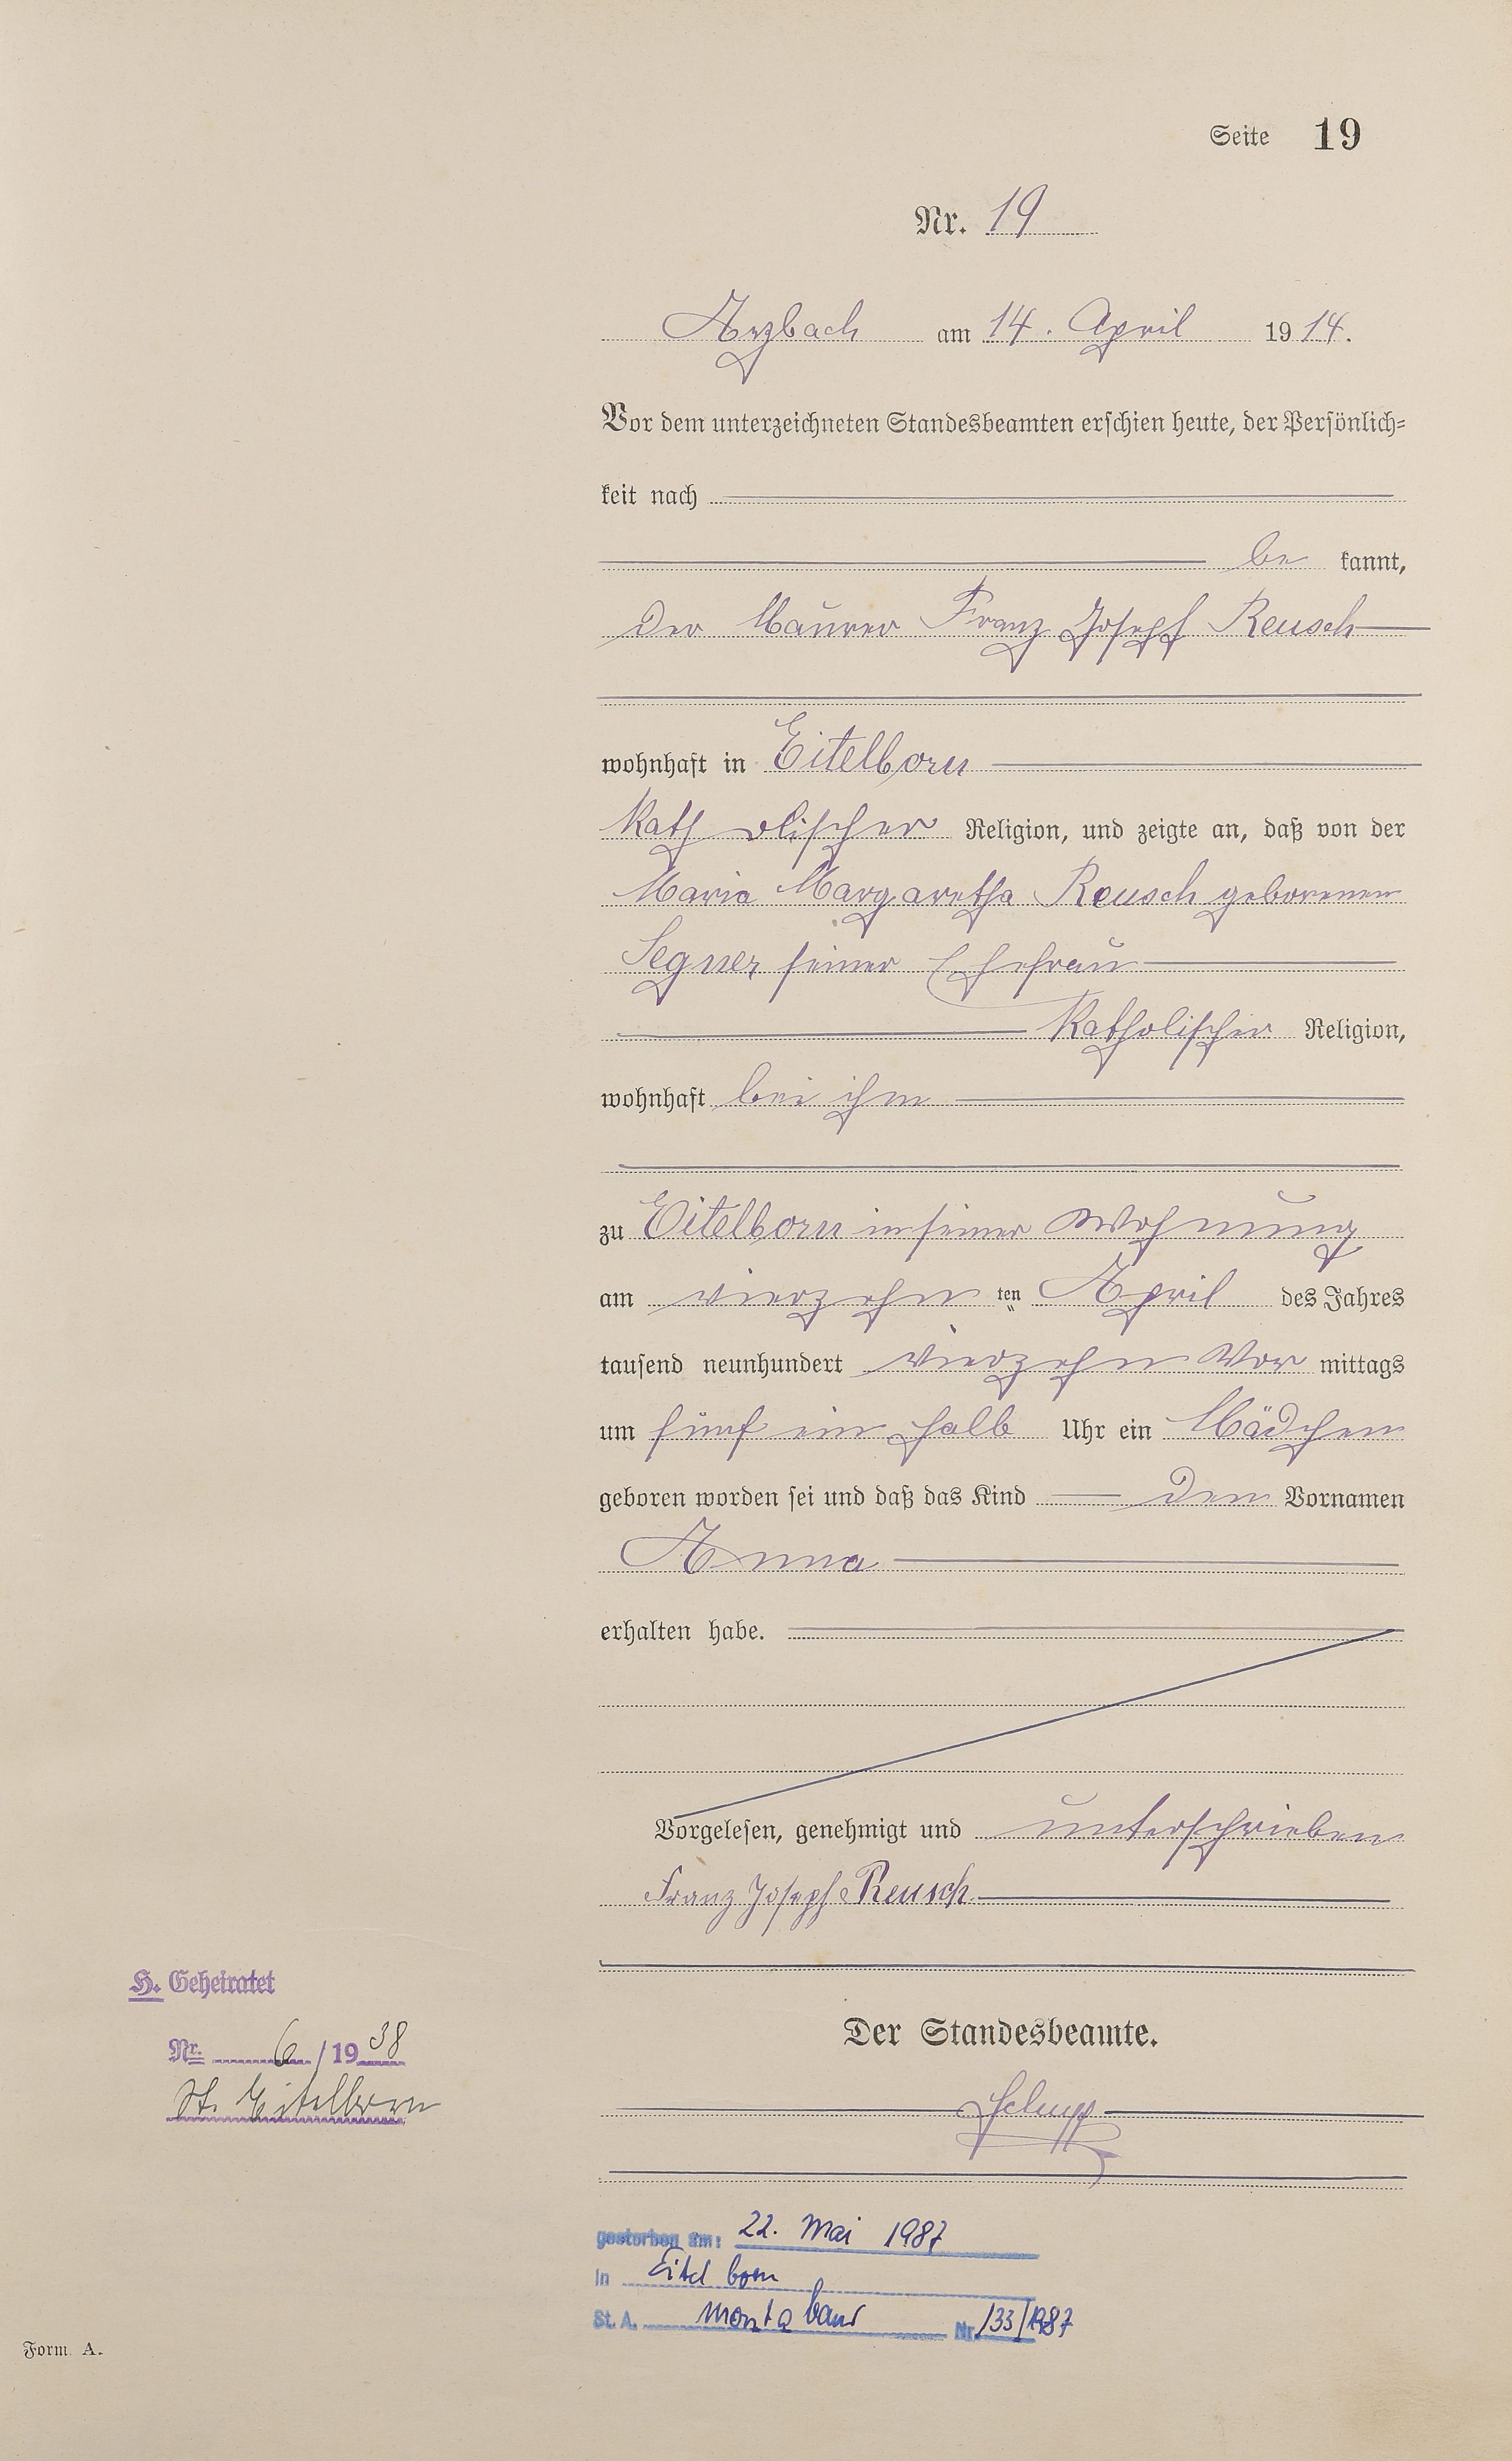 Seite 19
Nr. 19
Arzbach am 14. April 1914.
Vor dem unterzeichneten Standesbeamten erschien heute, der Persönlich=
keit nach
be kannt,
der Maurer Franz Joseph Reusch
wohnhaft in Eitelborn
katholischer Religion, und zeigte an, daß von der
Maria Margaretha Reusch geborenen
Segner seiner Ehefrau
katholischer Religion,
wohnhaft bei ihm
zu Eitelborn in seiner Wohnung
am vierzehn ten April des Jahres
tausend neunhundert vierzehn Vor mittags
um fünf ein halb Uhr ein Mädchen
geboren worden sei und daß das Kind den Vornamen
Anna
erhalten habe.
Vorgelesen, genehmigt und unterschrieben
Franz Joseph Reusch
H. Geheiratet
Nr. 6/1938
St. Eitelborn
Der Standesbeamte.
Schupp
gestorben am: 22. Mai 1987
in Eitelborn
St. A. Montabaur Nr. 133/1987
Form. A.